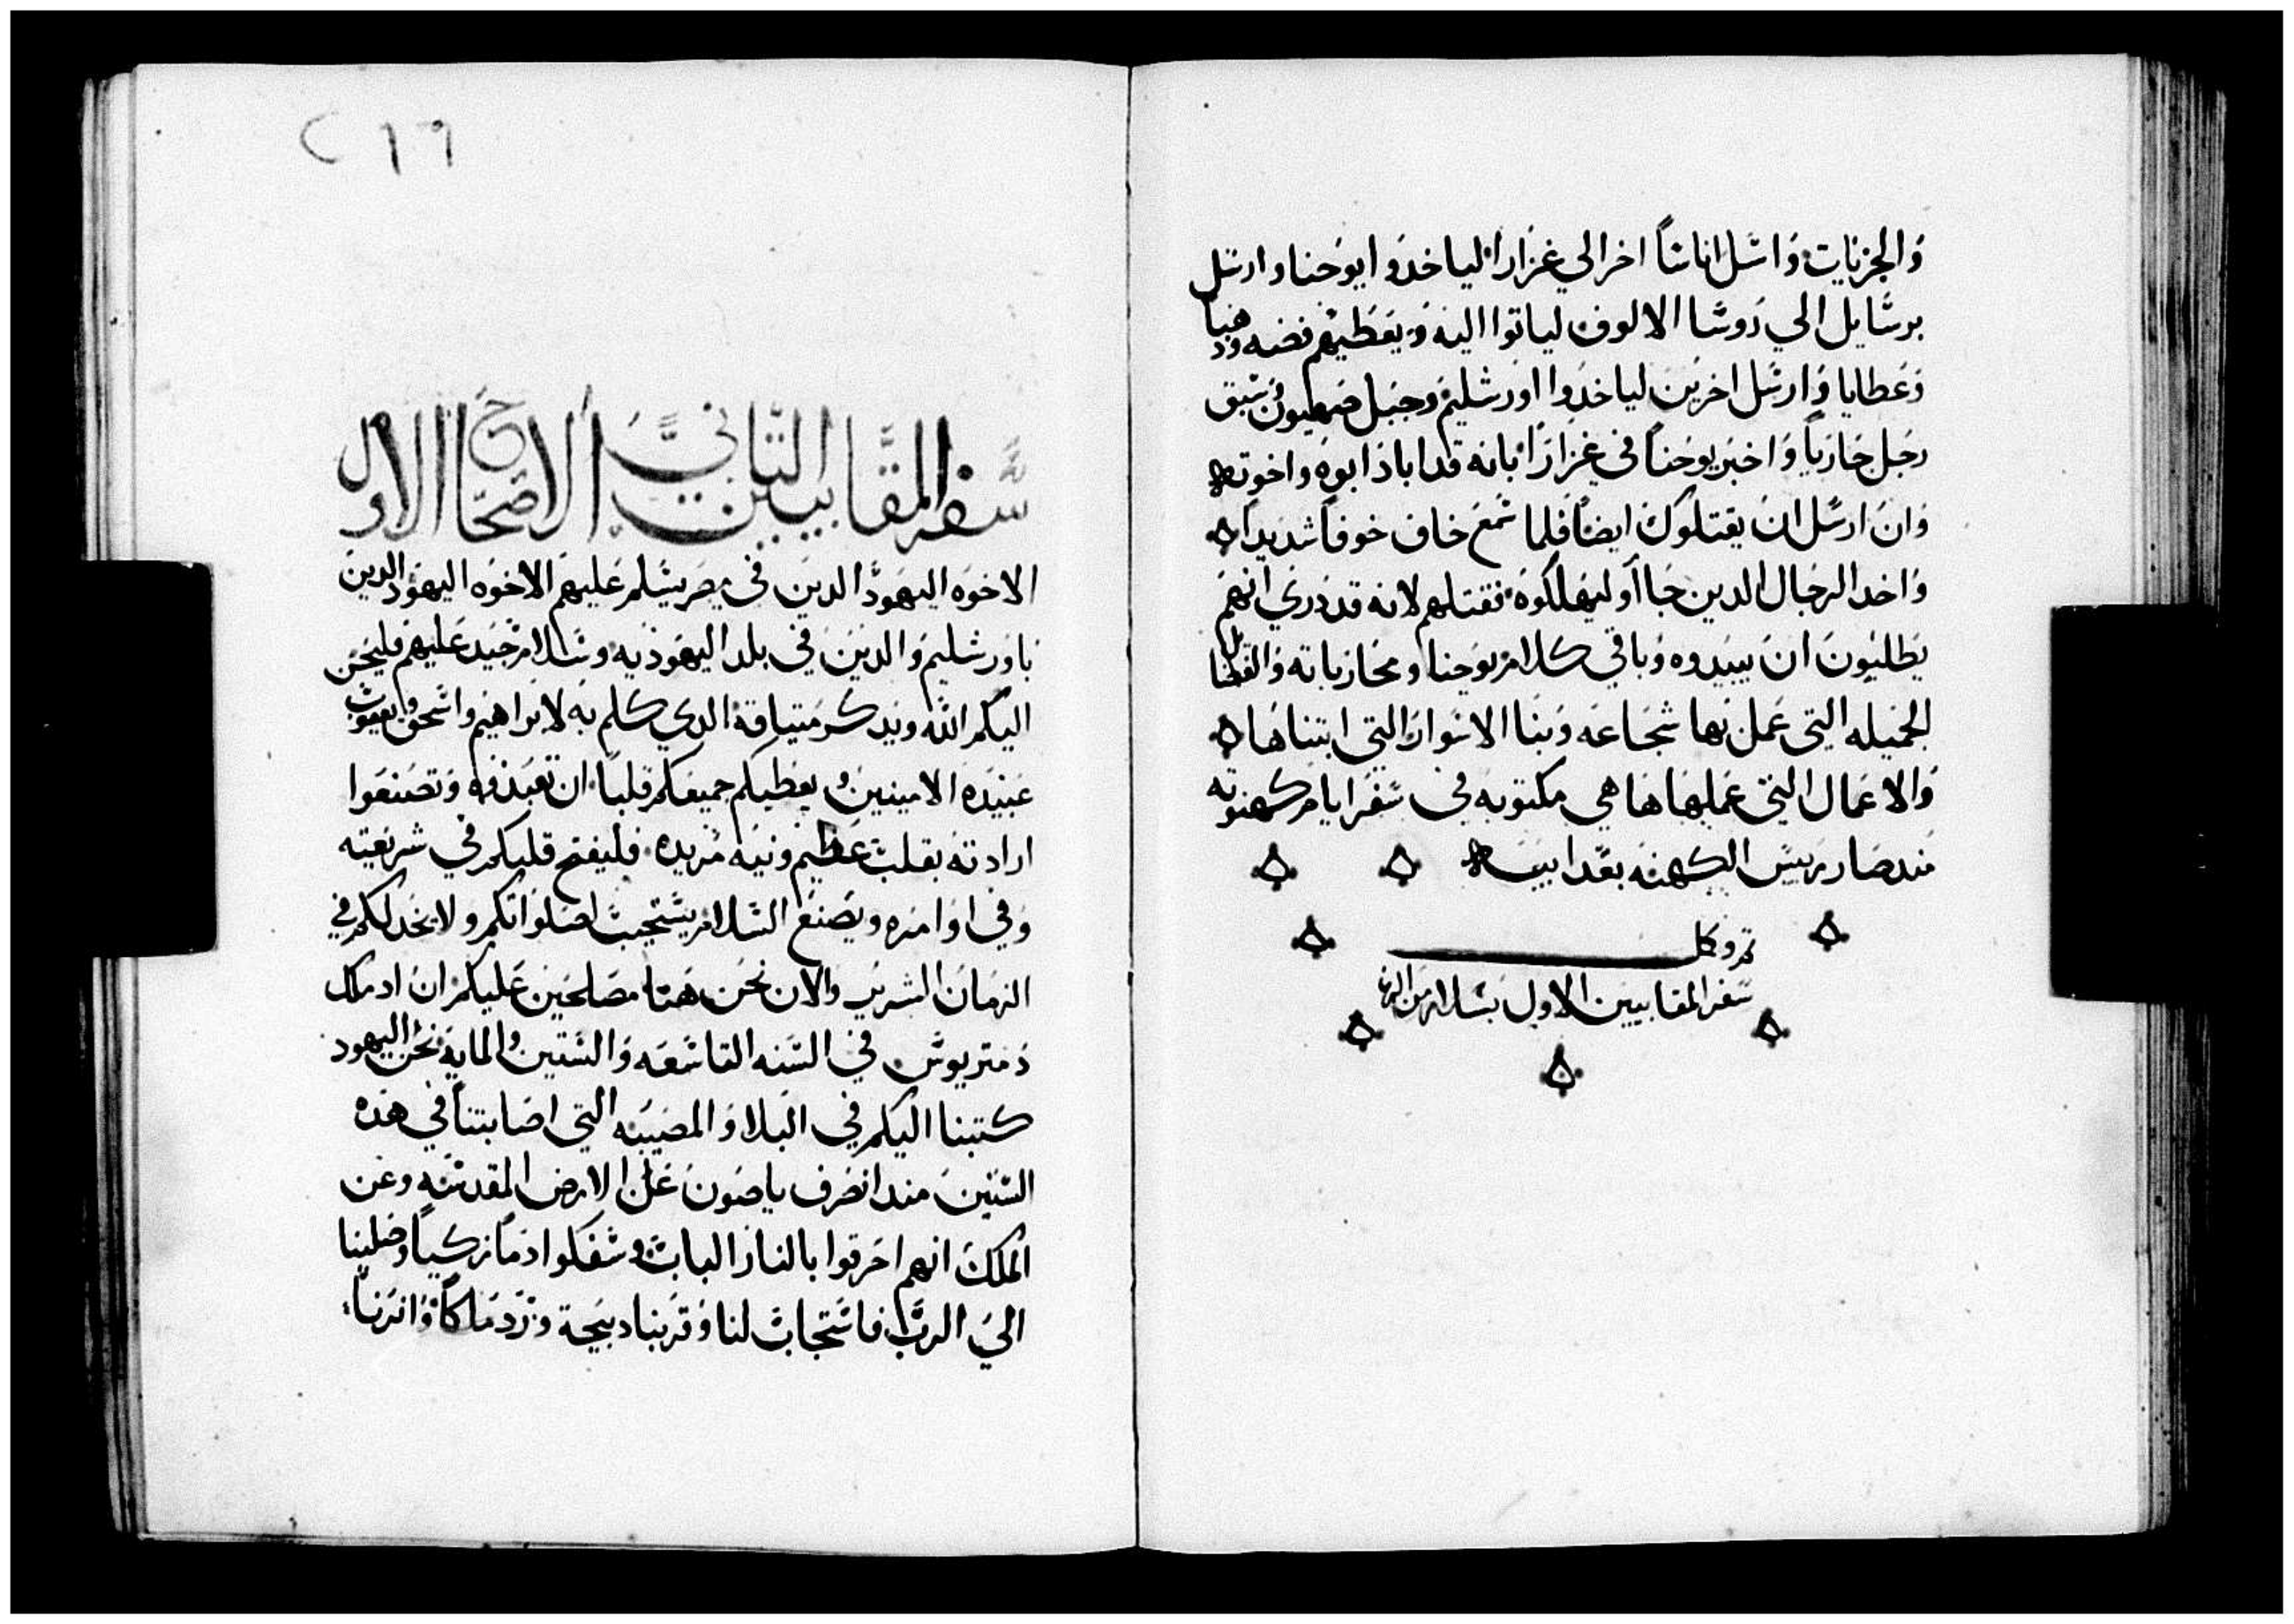 والجزيات واشل اناشاً اخر الي غزارا لياخدوا يوحنا وارشل
برشايل الي روشا الالوف لياتوا اليه ويعطيهم فضه ودهباً
وعطايا وارشل اخرين لياخدوا اورشليم وجبل صهيون وشبق
رجل جارياً واخبر يوحنا في غزارا بانه قد اباد ابوه واخوته
وان ارشل ان يقتلوك ايضاً فلما شمع خاف خوفاً شديداً
واخد الرجال الدين جااو ليهلكوه فقتلهم لانه قد دري انهم
يطلبون ان يبيدوه وباقي كلام يوحنا ومحارباته والفضايل
الجميله التي عمل بها شجاعه وبنا الاشوار التي ابتناها
والاعمال التي عملها ها هي مكتوبه في شفر ايام كهنوته
مند صار رييش الكهنه بعد ابيه
تم وكل
شفر المقابيين الاول بشلام من الرب
٢١٦
شفر المقابيين التاني الاصحاح الاول
الاخوه اليهود الدين في مصر يشلم عليهم الاخوه اليهود الدين
باورشليم والدين في بلد اليهوديه وشلام جيد عليهم فليحن
اليكم الله ويدكر متياقة الدي كلم به لابراهيم واشحق ويعقوب
عبيده الامينين ويعطيكم جميعكم قلباً ان تعبدوه وتصنعوا
ارادته بقلب عظيم ونيه مريده فليفتح قلبكم في شريعته
وفي اوامره ويصنع الشلام يشتجيب لصلواتكم ولا يخدلكم في
الزمان الشرير والان نحن هنا مصلحين عليكم ان اد ملك
دمتريوش في الشنه التاشعه والشتين والمايه نحن اليهود
كتبنا اليكم في البلا والمصيبه التي اصابتنا في هده
الشنين مند انصرف ياصون عن الارض المقدشه وعن
الملك انهم احرقوا بالنار الباب وشفكوا دماً زكياً وصلينا
الي الرب فاشتجاب لنا وقربنا دبيحة ودرماكاً وانرنا